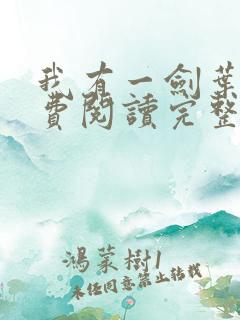 我有一劍葉
費閱讀完整
鴻蒙樹1
未經同意禁止轉載